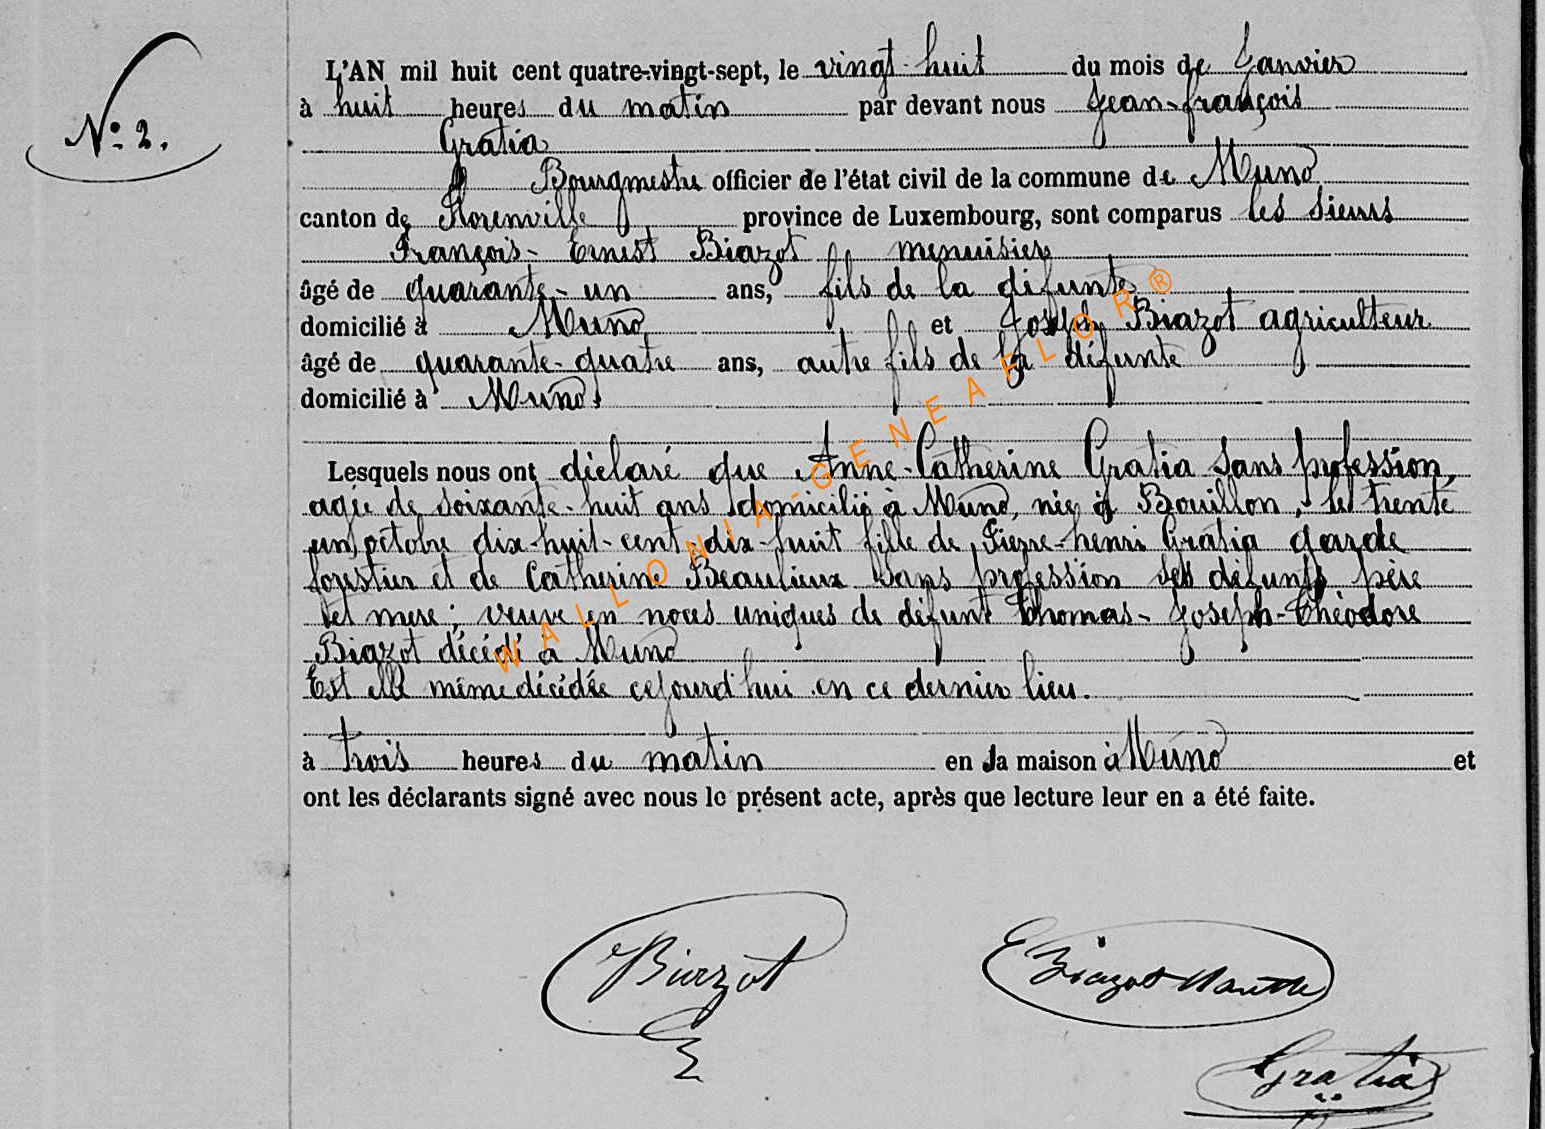 N° 2.
L'AN mil huit cent quatre-vingt-sept, le vingt-huit du mois de Janvier
à huit heures du matin par devant nous Jean-françois
Gratia
Bourgmestre officier de l'état civil de la commune de Muno
canton de Florenville province de Luxembourg, sont comparus les sieurs
François-Ernest Biazot menuisier
âgé de quarante-un ans, fils de la défunte
domicilié à Muno et Joseph Biazot agriculteur
âgé de quarante-quatre ans, autre fils de la défunte
domicilié à Muno
Lesquels nous ont déclaré que Anne-Catherine Gratia sans profession,
agée de soixante-huit ans domiciliée à Muno, née à Bouillon, le trente
un octobre dix-huit-cent-dix-huit fille de Pierre-henri Gratia garde
forestier et de Catherine Beaulieux sans profession ses défunts père
et mère; veuve en noces uniques de défunt Thomas-Joseph-Théodore
Biazot décédé à Muno
Est elle même décédée cejourd'hui en ce dernier lieu.
à trois heures du matin en la maison à Muno et
ont les déclarants signé avec nous le présent acte, après que lecture leur en a été faite.
Biazot
E Biazot
Gratia
WALLONIA-GENEAFLOR®